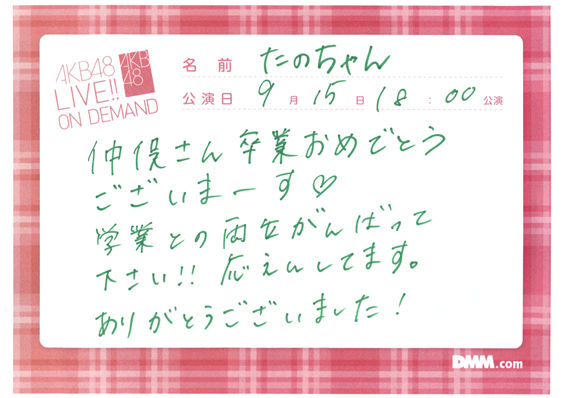 AKB48
LIVE!!
ON DEMAND
AKB
48
名前 たのちゃん
公演日 9月15日 18:00公演
仲俣さん卒業おめでとう
ございまーす♡
学業との両立がんばって
下さい!! 応えんしてます。
ありがとうございました!
DMM.com